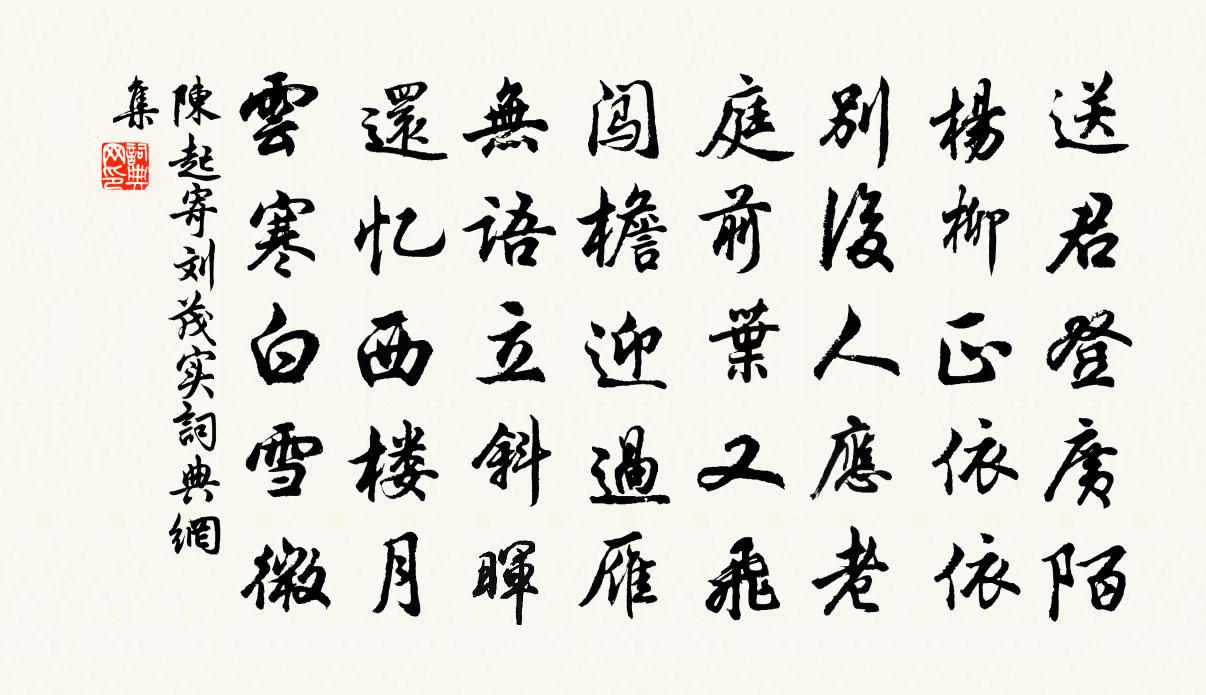 送君登廣陌
楊柳正依依
別後人應老
庭前葉又飛
闯檐迎過雁
無語立斜暉
還忆西楼月
雲寒白雪微
陳起寄刘茂实詞典網
集
詞典
网印